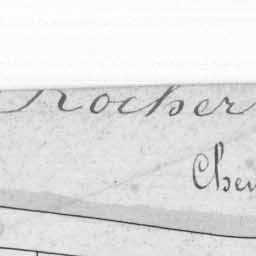 Rocher
Chem